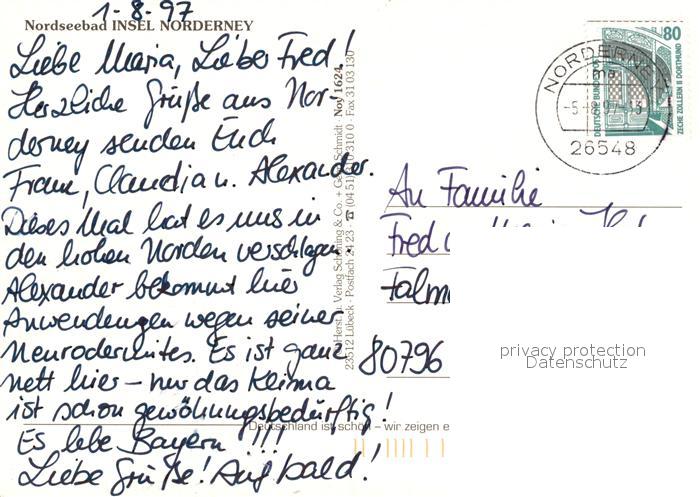 1-8-97
Nordseebad INSEL NORDERNEY
Liebe Maria, Lieber Fred!
Herzliche Grüße aus Nor-
derney senden Euch
Franz, Claudia u. Alexander.
Dieses Mal hat es uns in
den hohen Norden verschlagen.
Alexander bekommt hier
Anwendungen wegen seiner
Neurodermites. Es ist ganz
nett hier – nur das Klima
ist schon gewöhnungsbedürftig!
Es lebe Bayern !!!!
Liebe Grüße! Auf bald!
Verlag Schöning & Co. + Gebr. Schmidt · Noy 1624
23512 Lübeck · Postfach 23 · ☎ (04 51) 310 · Fax 31 03 130
Deutschland ist schön – wir zeigen e
80
DEUTSCHE BUNDESPOST
ZECHE ZOLLERN II DORTMUND
NORDERNEY
26548
An Familie
Fred
80796
privacy protection
Datenschutz